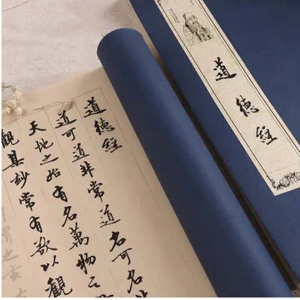 道德經
道德經
道可道非常道名可名
天地之始有名萬物之
觀其妙常有欲以觀